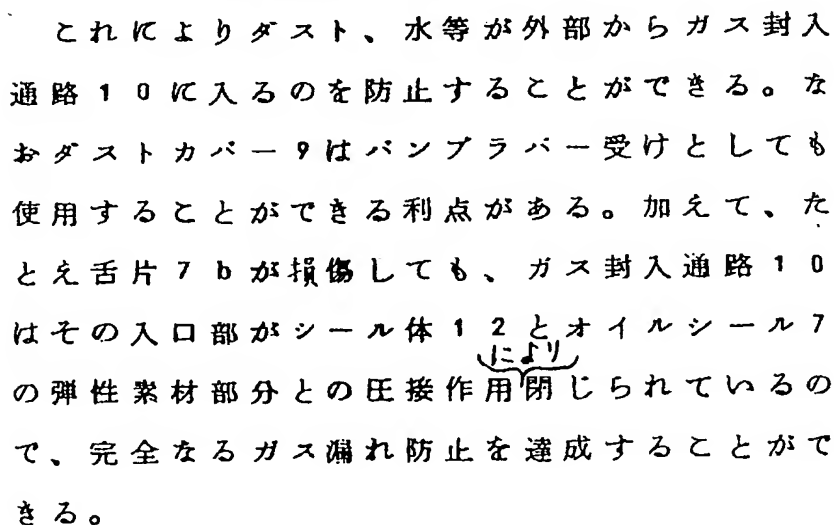 これによりダスト、水等が外部からガス封入
通路10に入るのを防止することができる。な
おダストカバー9はバンプラバー受けとしても
使用することができる利点がある。加えて、た
とえ舌片7bが損傷しても、ガス封入通路10
はその入口部がシール体12とオイルシール7
の弾性素材部分との圧接作用により閉じられているの
で、完全なるガス漏れ防止を達成することがで
きる。